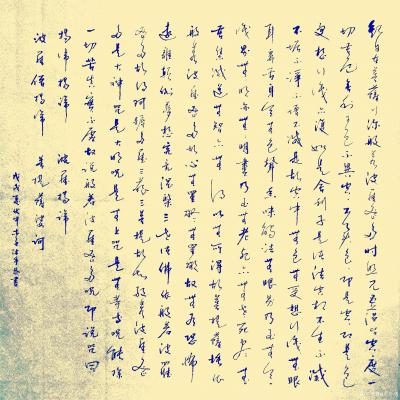 觀自在菩薩行深般若波羅蜜多時照見五蘊皆空度一
切苦厄舍利子色不異空空不異色色即是空空即是色
受想行識亦復如是舍利子是諸法空相不生不滅
不垢不淨不增不減是故空中無色無受想行識無眼
耳鼻舌身意無色聲香味觸法無眼界乃至無意
識界無無明亦無無明盡乃至無老死亦無老死盡無
苦集滅道無智亦無得以無所得故菩提薩埵依
般若波羅蜜多故心無罣礙無罣礙故無有恐怖
遠離顛倒夢想究竟涅槃三世諸佛依般若波羅
蜜多故得阿耨多羅三藐三菩提故知般若波羅蜜
多是大神咒是大明咒是無上咒是無等等咒能除
一切苦真實不虛故說般若波羅蜜多咒即說咒曰
揭諦揭諦 波羅揭諦
波羅僧揭諦 菩提薩婆訶
戊戌夏